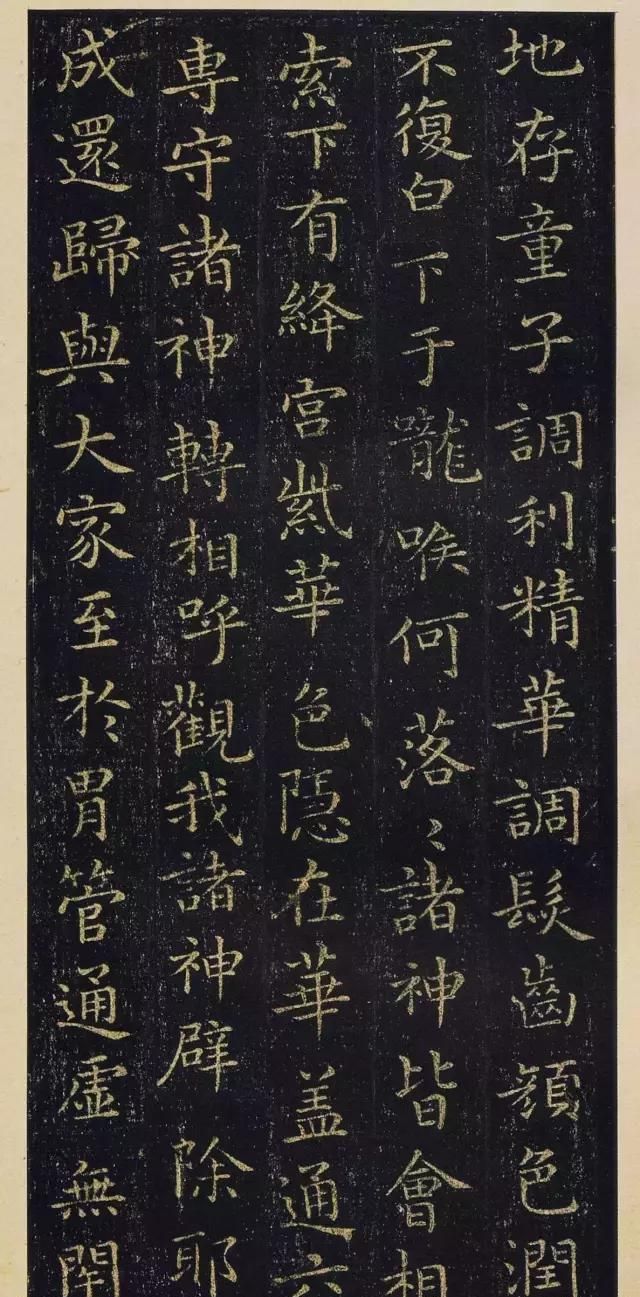 地存童子調利精華調髮齒顔色潤
不復白下于嚨喉何落〻諸神皆會相
索下有絳宮紫華色隱在華盖通六
專守諸神轉相呼觀我諸神辟除耶
成還歸與大家至於胃管通虛無閈